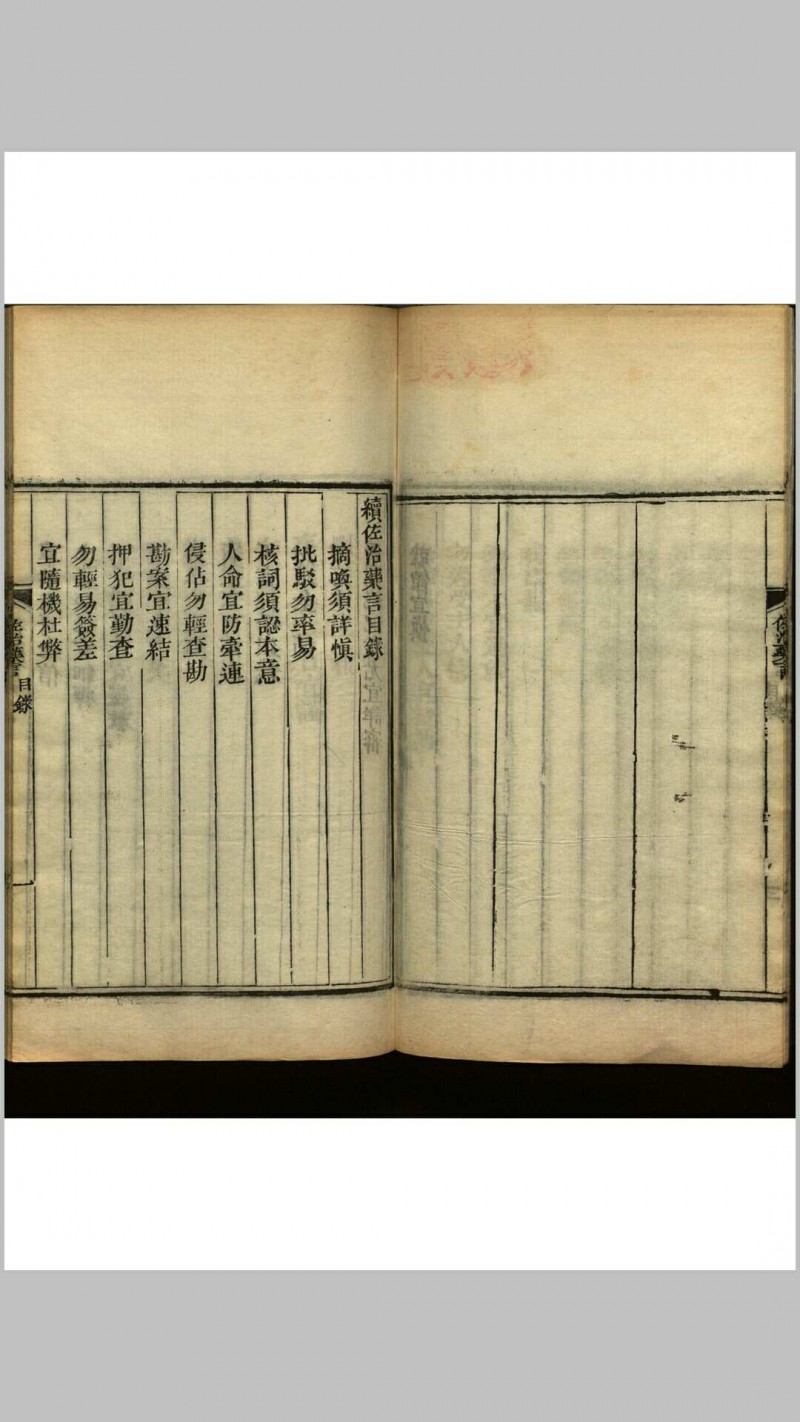 續佐治藥言目錄
摘喚須詳慎
批駁勿率易
核詞須認本意
人命宜防牽連
侵佔勿輕查勘
勘案宜速結
押犯宜勤查
勿輕易簽差
宜隨機杜弊
佐治藥言 目錄